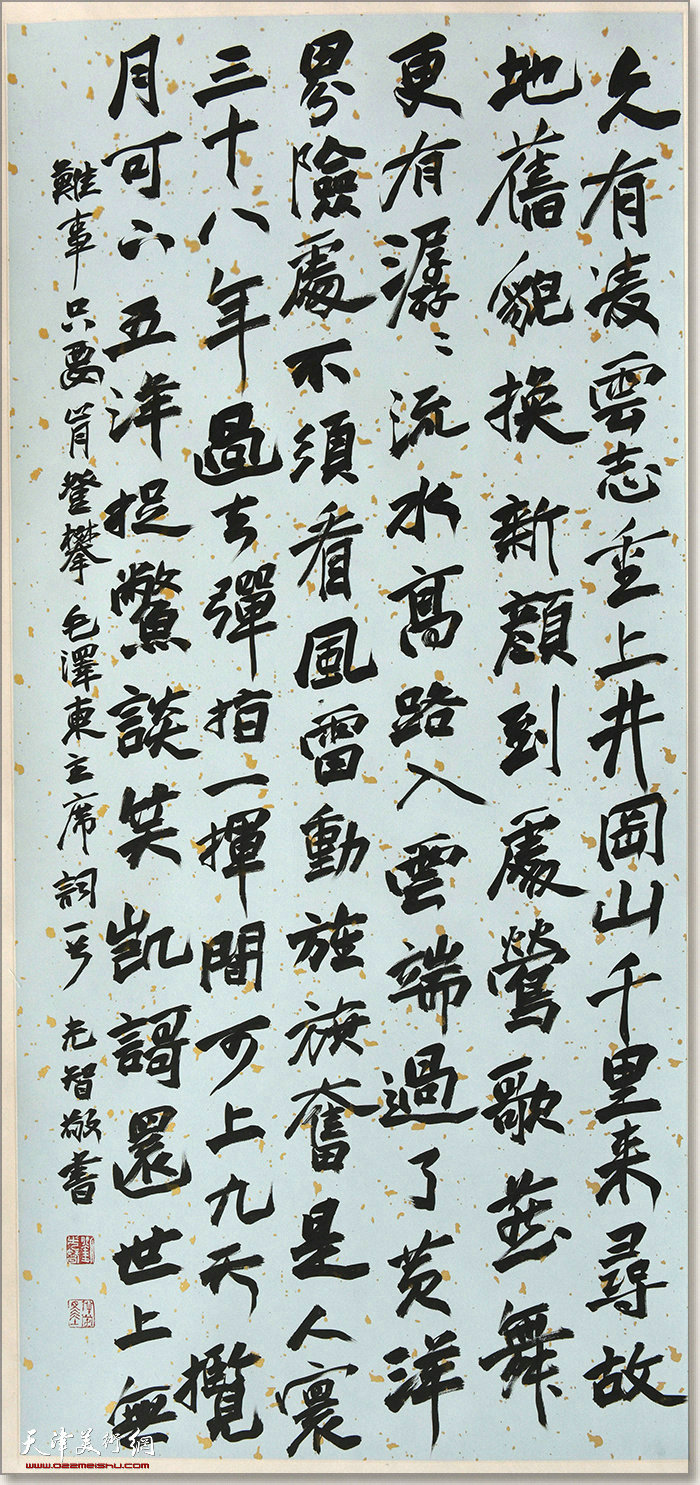 久有凌雲志重上井岡山千里来尋故
地舊貌換新顔到處鶯歌燕舞
更有潺〻流水高路入雲端過了黄洋
界險處不須看風雷動旌旗奮是人寰
三十八年過去彈指一揮間可上九天攬
月可下五洋捉鱉談笑凱謌還世上無
難事只要肯登攀 毛澤東主席詞一首 光智敬書
天津美術網
www.022meishu.com